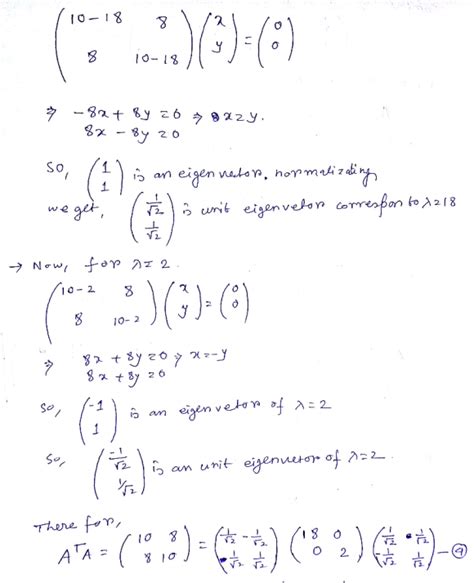 (10-18 8
8 10-18) (x
y) = (0
0)
⇒ -8x + 8y = 0 ⇒ x = y.
8x - 8y = 0
So, (1
1) is an eigenvector. normalizating
we get, (1/√2
1/√2) is unit eigenvetor correspon to λ=18
→ Now, for λ = 2.
(10-2 8
8 10-2) (x
y) = (0
0)
⇒ 8x + 8y = 0 ⇒ x = -y
8x + 8y = 0
So, (-1
1) is an eigenvetor of λ = 2
So, (-1/√2
1/√2) is an unit eigenvetor of λ = 2.
There for,
AᵀA = (10 8
8 10) = (1/√2 -1/√2
1/√2 1/√2) (18 0
0 2) (1/√2 1/√2
-1/√2 1/√2) — ④